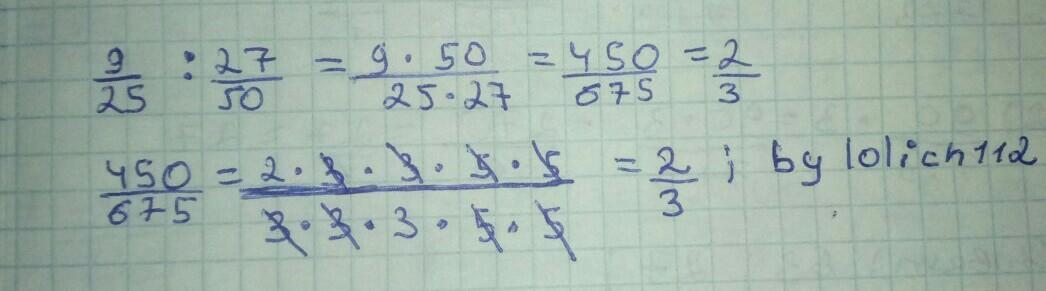 9/25 : 27/50 = 9 · 50/25 · 27 = 450/675 = 2/3
450/675 = 2 · 3 · 3 · 5 · 5/3 · 3 · 3 · 5 · 5 = 2/3 ; by lolich112